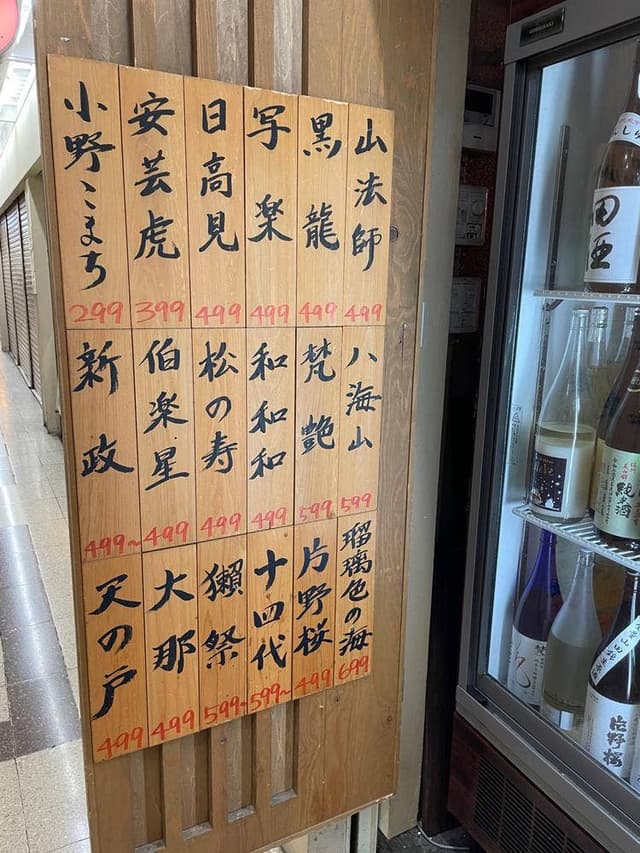 山法師
499
黒龍
499
写楽
499
日高見
499
安芸虎
399
小野こまち
299
八海山
599
梵艶
599
和和和
499
松の寿
499
伯楽星
499
新政
499~
瑠璃色の海
699
片野桜
499
十四代
599~
獺祭
599~
大那
499
天の戸
499
田酒
純米酒
片野桜